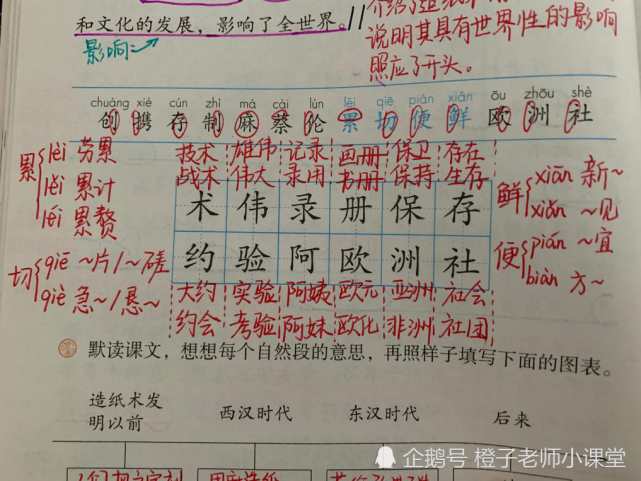 和文化的发展，影响了全世界。
影响→
说明其具有世界性的影响
照应了开头。
chuàng xié cún zhì má cài lún lěi qiē piàn xiān ōu zhōu shè
创 携 存 制 麻 蔡 伦 累 切 便 鲜 欧 洲 社
累
lèi 劳累
lěi 累计
léi 累赘
切
qiē ~片/~磋
qiè 急~/恳~
技术 雄伟 记录 画册 保卫 存在
战术 伟大 录用 书册 保持 生存
术 伟 录 册 保 存
约 验 阿 欧 洲 社
大约 实验 阿姨 欧元 亚洲 社会
约会 考验 阿妹 欧化 非洲 社团
鲜
xiān 新~
xiǎn ~见
便
pián ~宜
biàn 方~
默读课文，想想每个自然段的意思，再照样子填写下面的图表。
造纸术发
明以前
西汉时代
东汉时代
后来
企鹅号 橙子老师小课堂